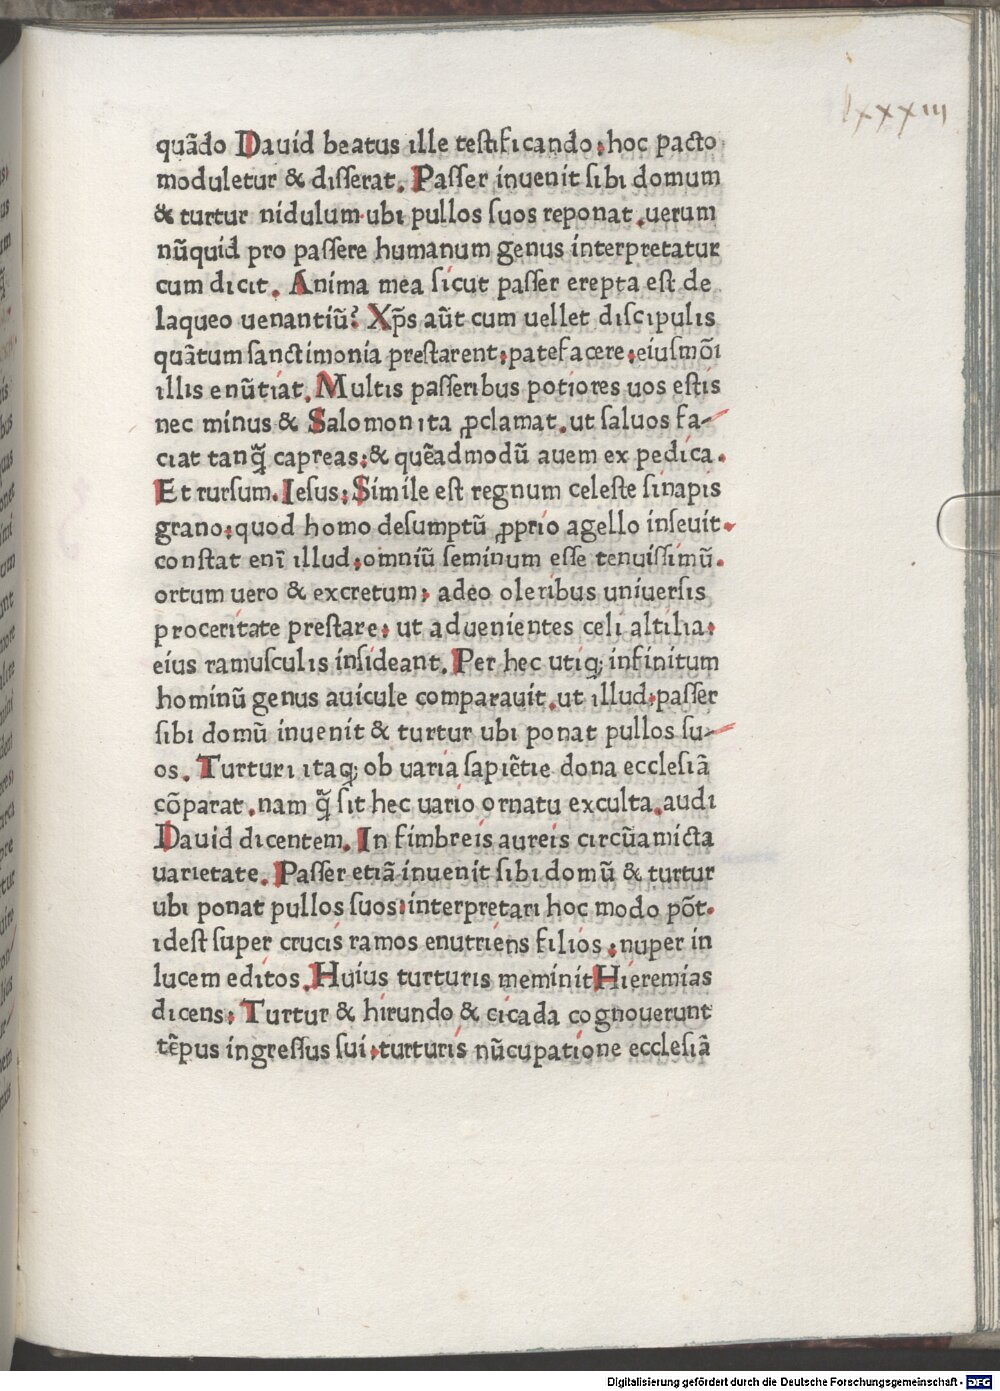 lxxxiii
quãdo Dauid beatus ille testificando: hoc pacto
moduletur & disserat. Passer inuenit sibi domum
& turtur nidulum ubi pullos suos reponat. uerum
nũquid pro passere humanum genus interpretatur
cum dicit. Anima mea sicut passer erepta est de
laqueo uenantiũ? Xp̃s aũt cum uellet discipulis
quãtum sanctimonia prestarent: patefacere: eiusmõi
illis enũtiat. Multis passeribus potiores uos estis
nec minus & Salomon ita ꝓclamat. ut saluos fa-
ciat tanq̃ capreas: & quẽadmodũ auem ex pedica.
Et rursum. Iesus: Simile est regnum celeste sinapis
grano: quod homo desumptũ ꝓprio agello inseuit.
constat enĩ illud: omniũ seminum esse tenuissimũ.
ortum uero & excretum: adeo oleribus uniuersis
proceritate prestare: ut aduenientes celi altilia:
eius ramusculis insideant. Per hec utiq; infinitum
hominũ genus auicule comparauit. ut illud: passer
sibi domũ inuenit & turtur ubi ponat pullos su-
os. Turturi itaq; ob uaria sapiẽtie dona ecclesiã
cõparat. nam q̃ sit hec uario ornatu exculta. audi
Dauid dicentem. In fimbreis aureis circũamicta
uarietate. Passer etiã inuenit sibi domũ & turtur
ubi ponat pullos suos: interpretari hoc modo põt.
idest super crucis ramos enutriens filios: nuper in
lucem editos. Huius turturis meminit Hieremias
dicens: Turtur & hirundo & cicada cognouerunt
tẽpus ingressus sui: turturis nũcupatione ecclesiã
Digitalisierung gefördert durch die Deutsche Forschungsgemeinschaft - DFG